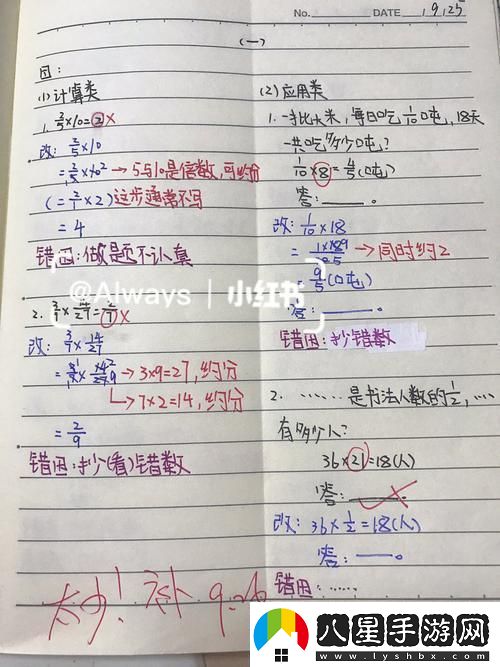 No. DATE 9,25
(一)
因:
(1)计算类
1. 2/5×10=②×
改: 2/5×10
=2/5×10² → 5与10是倍数,可约分
(=2/1×2)这步通常不写
=4
错因:做题不认真
@Always | 小红书
2. 3/7×14/27=
改: 3/7×14/27
→ 3×9=27,约分
→ 7×2=14,约分
=2/9
错因:抄(看)错数
(2)应用类
1. 一持比大米,每日吃1/10吨,18天
一共吃多少吨?
1/10×8=4/5(吨)
答:____。
改: 1/10×18
→ 同时约2
9/5(吨)
答:____。
错因:抄错数
2. ……是书法人数的1/2,…
有多少人?
36×21=18(人)
答:____
改: 36×1/2=18(人)
答:____。
错因:……
太少!补 9.26
八星手游网
www.lyshbx.com